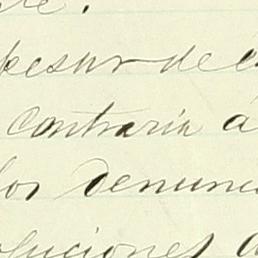 pesar de
contraria á
los denun
oluciones